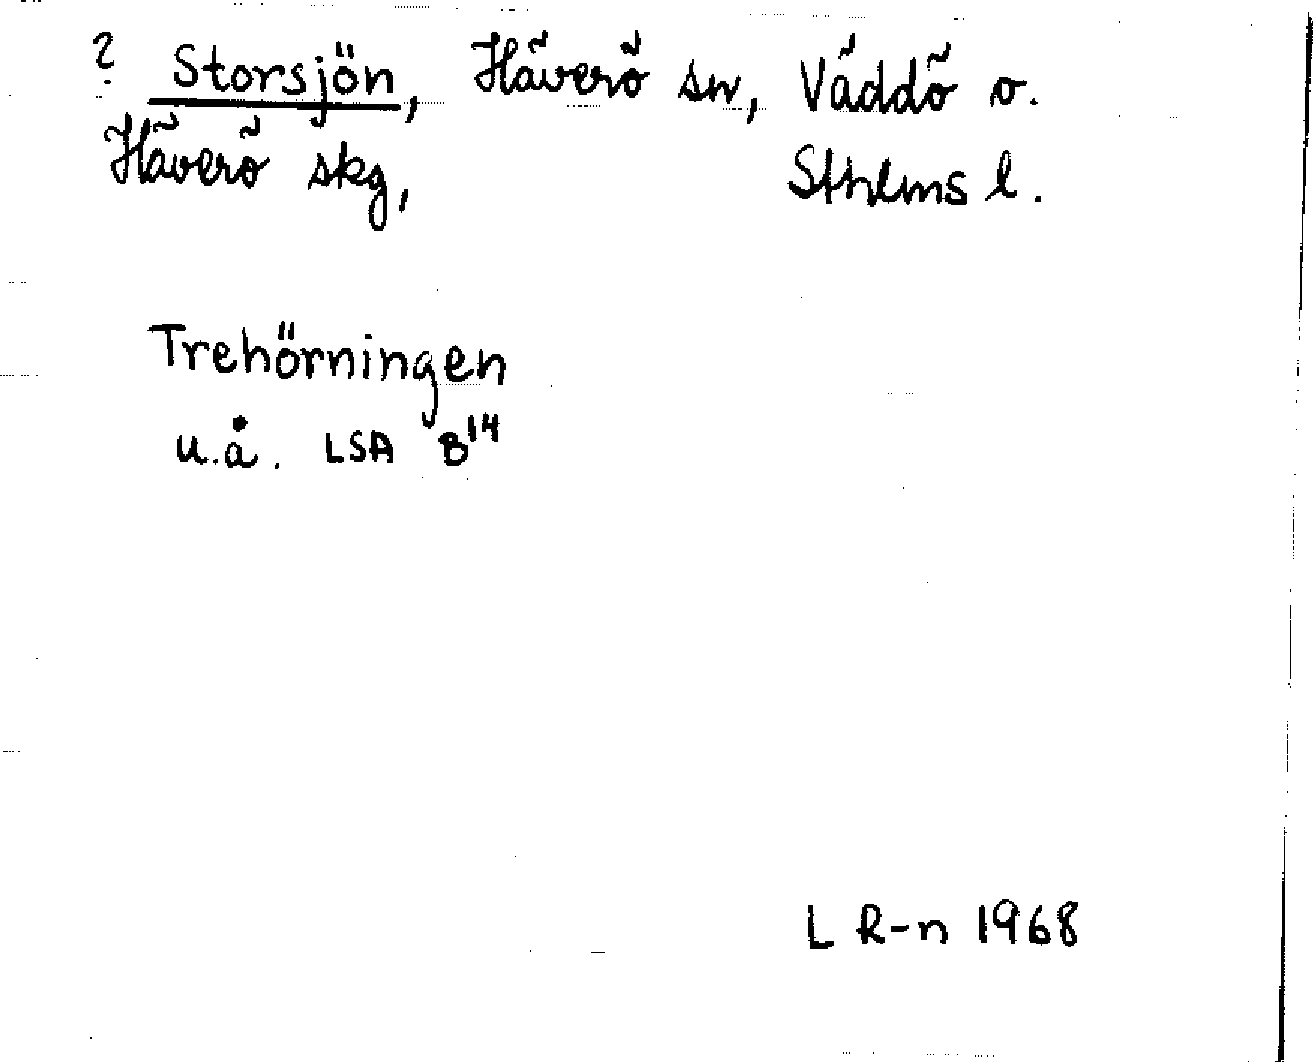 ? Storsjön, Häverö sn, Väddö o.
Häverö skg, Sthlms l.
Trehörningen
u.å. LSA B¹⁴
L R-n 1968